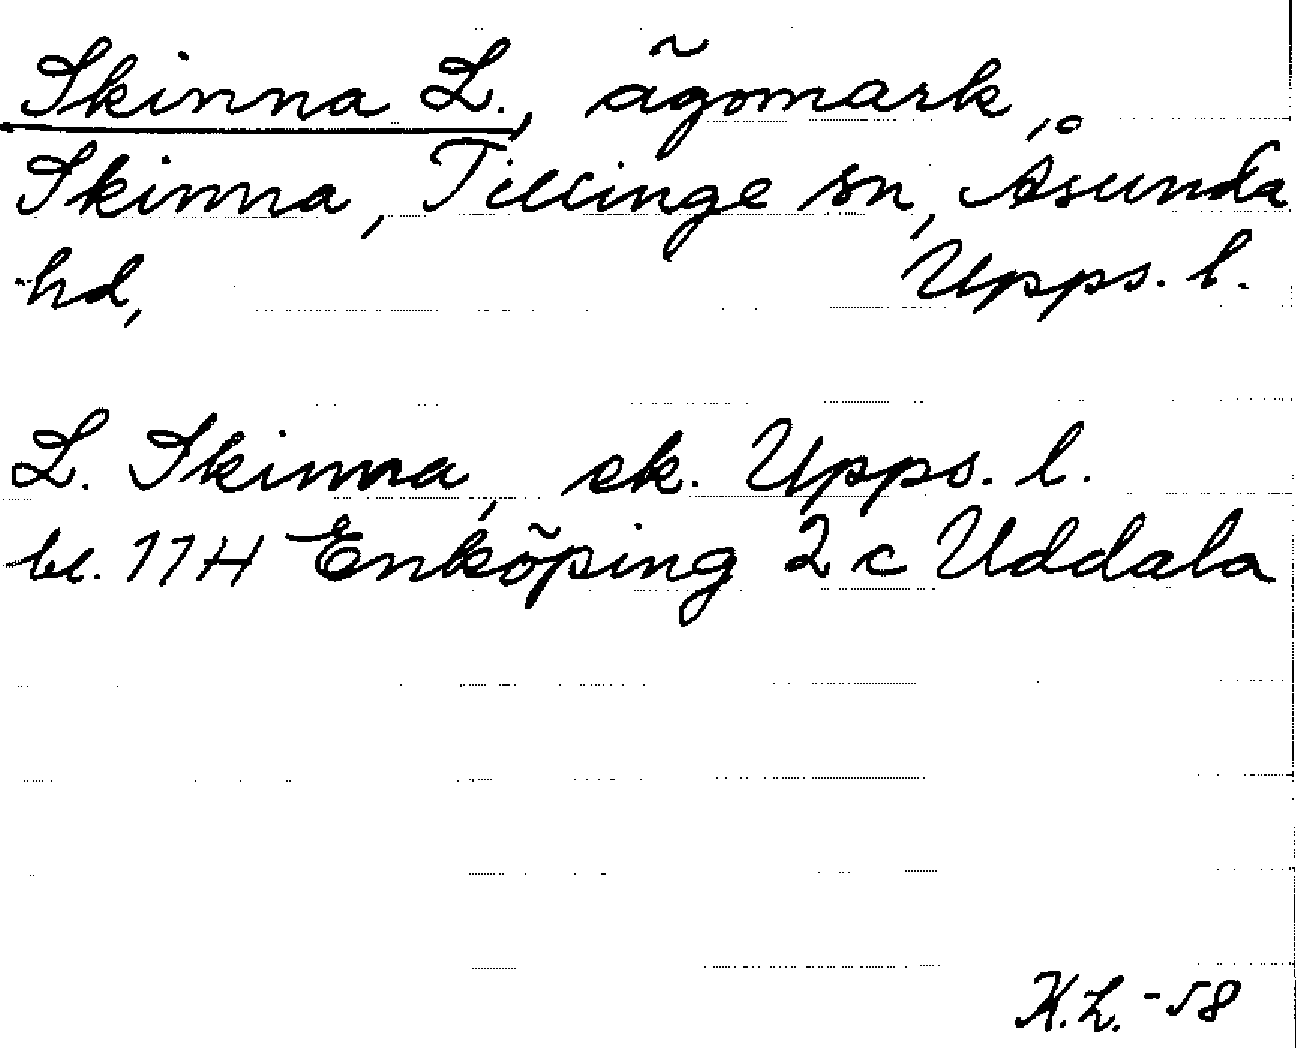 Skinna L., ägomark,
Skinna, Tillinge sn, Åsunda
hd, Upps. l.
L. Skinna, ek. Upps. l.
bl. 11H Enköping 2c Uddala
H.L. -58